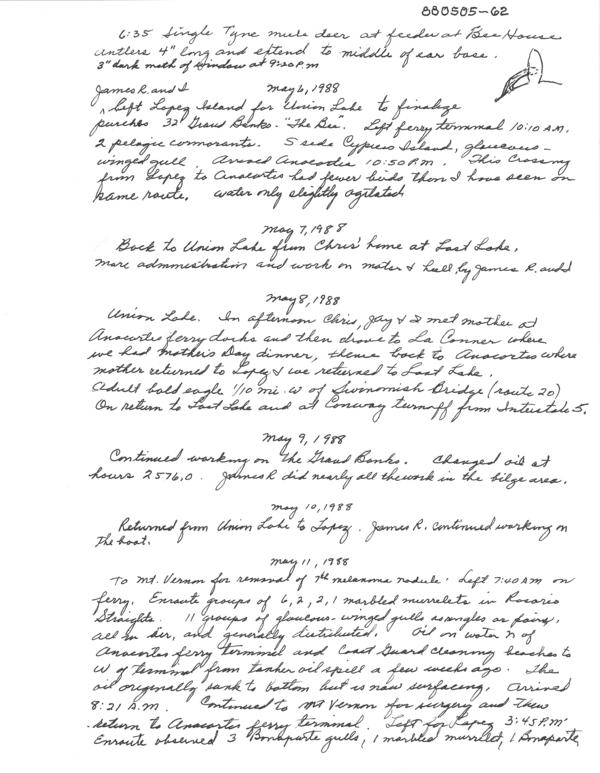 880505-62
6:35 Single Tyne mule deer at feeder at Bee House
antlers 4" long and extend to middle of ear base.
3" dark moth at window at 9:20 P.M
May 6, 1988
James R. and I
^ left Lopez Island for Union Lake to finalize
purches 32' Grand Banks - "The Bee". Left ferry terminal 10:10 A.M.
2 pelagic cormorants. S side Cypress Island, glaucous-
winged gull. Arrived Anacortes 10:50 P.M. This Crossing
from Lopez to Anacortes had fewer birds than I have seen on
same route. water only slightly agitated
May 7, 1988
Back to Union Lake from Chris' home at Lost Lake.
more administration and work on motor & hull by James R. and I
May 8, 1988
Union Lake. In afternoon Chris, Jay & I met mother at
Anacortes ferry docks and then drove to La Conner where
we had Mother's Day dinner, thence back to Anacortes where
mother returned to Lopez & we returned to Lost Lake.
Adult bald eagle 1/10 mi. W of Swinomish Bridge (route 20)
On return to Lost Lake and at Conway turnoff from Interstate 5.
May 9, 1988
Continued working on the Grand Banks. Changed oil at
hours 2576.0. James R did nearly all the work in the bilge area.
May 10, 1988
Returned from Union Lake to Lopez. James R. continued working on
The boat.
May 11, 1988
To Mt. Vernon for removal of 7th melanoma nodule. Left 7:40 AM on
ferry. Enroute groups of 6, 2, 2, 1 marbled murrelets in Rosario
Straights. 11 groups of glaucous-winged gulls as singles or pairs,
all in air, and generally distributed. Oil on water N of
Anacortes ferry terminal and Coast Guard cleaning beaches to
W of terminal from tanker oil spill a few weeks ago. The
oil originally sank to bottom but is now surfacing. Arrived
8:21 A.M. Continued to Mt Vernon for surgery and then
return to Anacortes ferry terminal. Left for Lopez 3:45 P.M
Enroute observed 3 Bonaparte gulls, 1 marbled murrelet, 1 Bonaparte